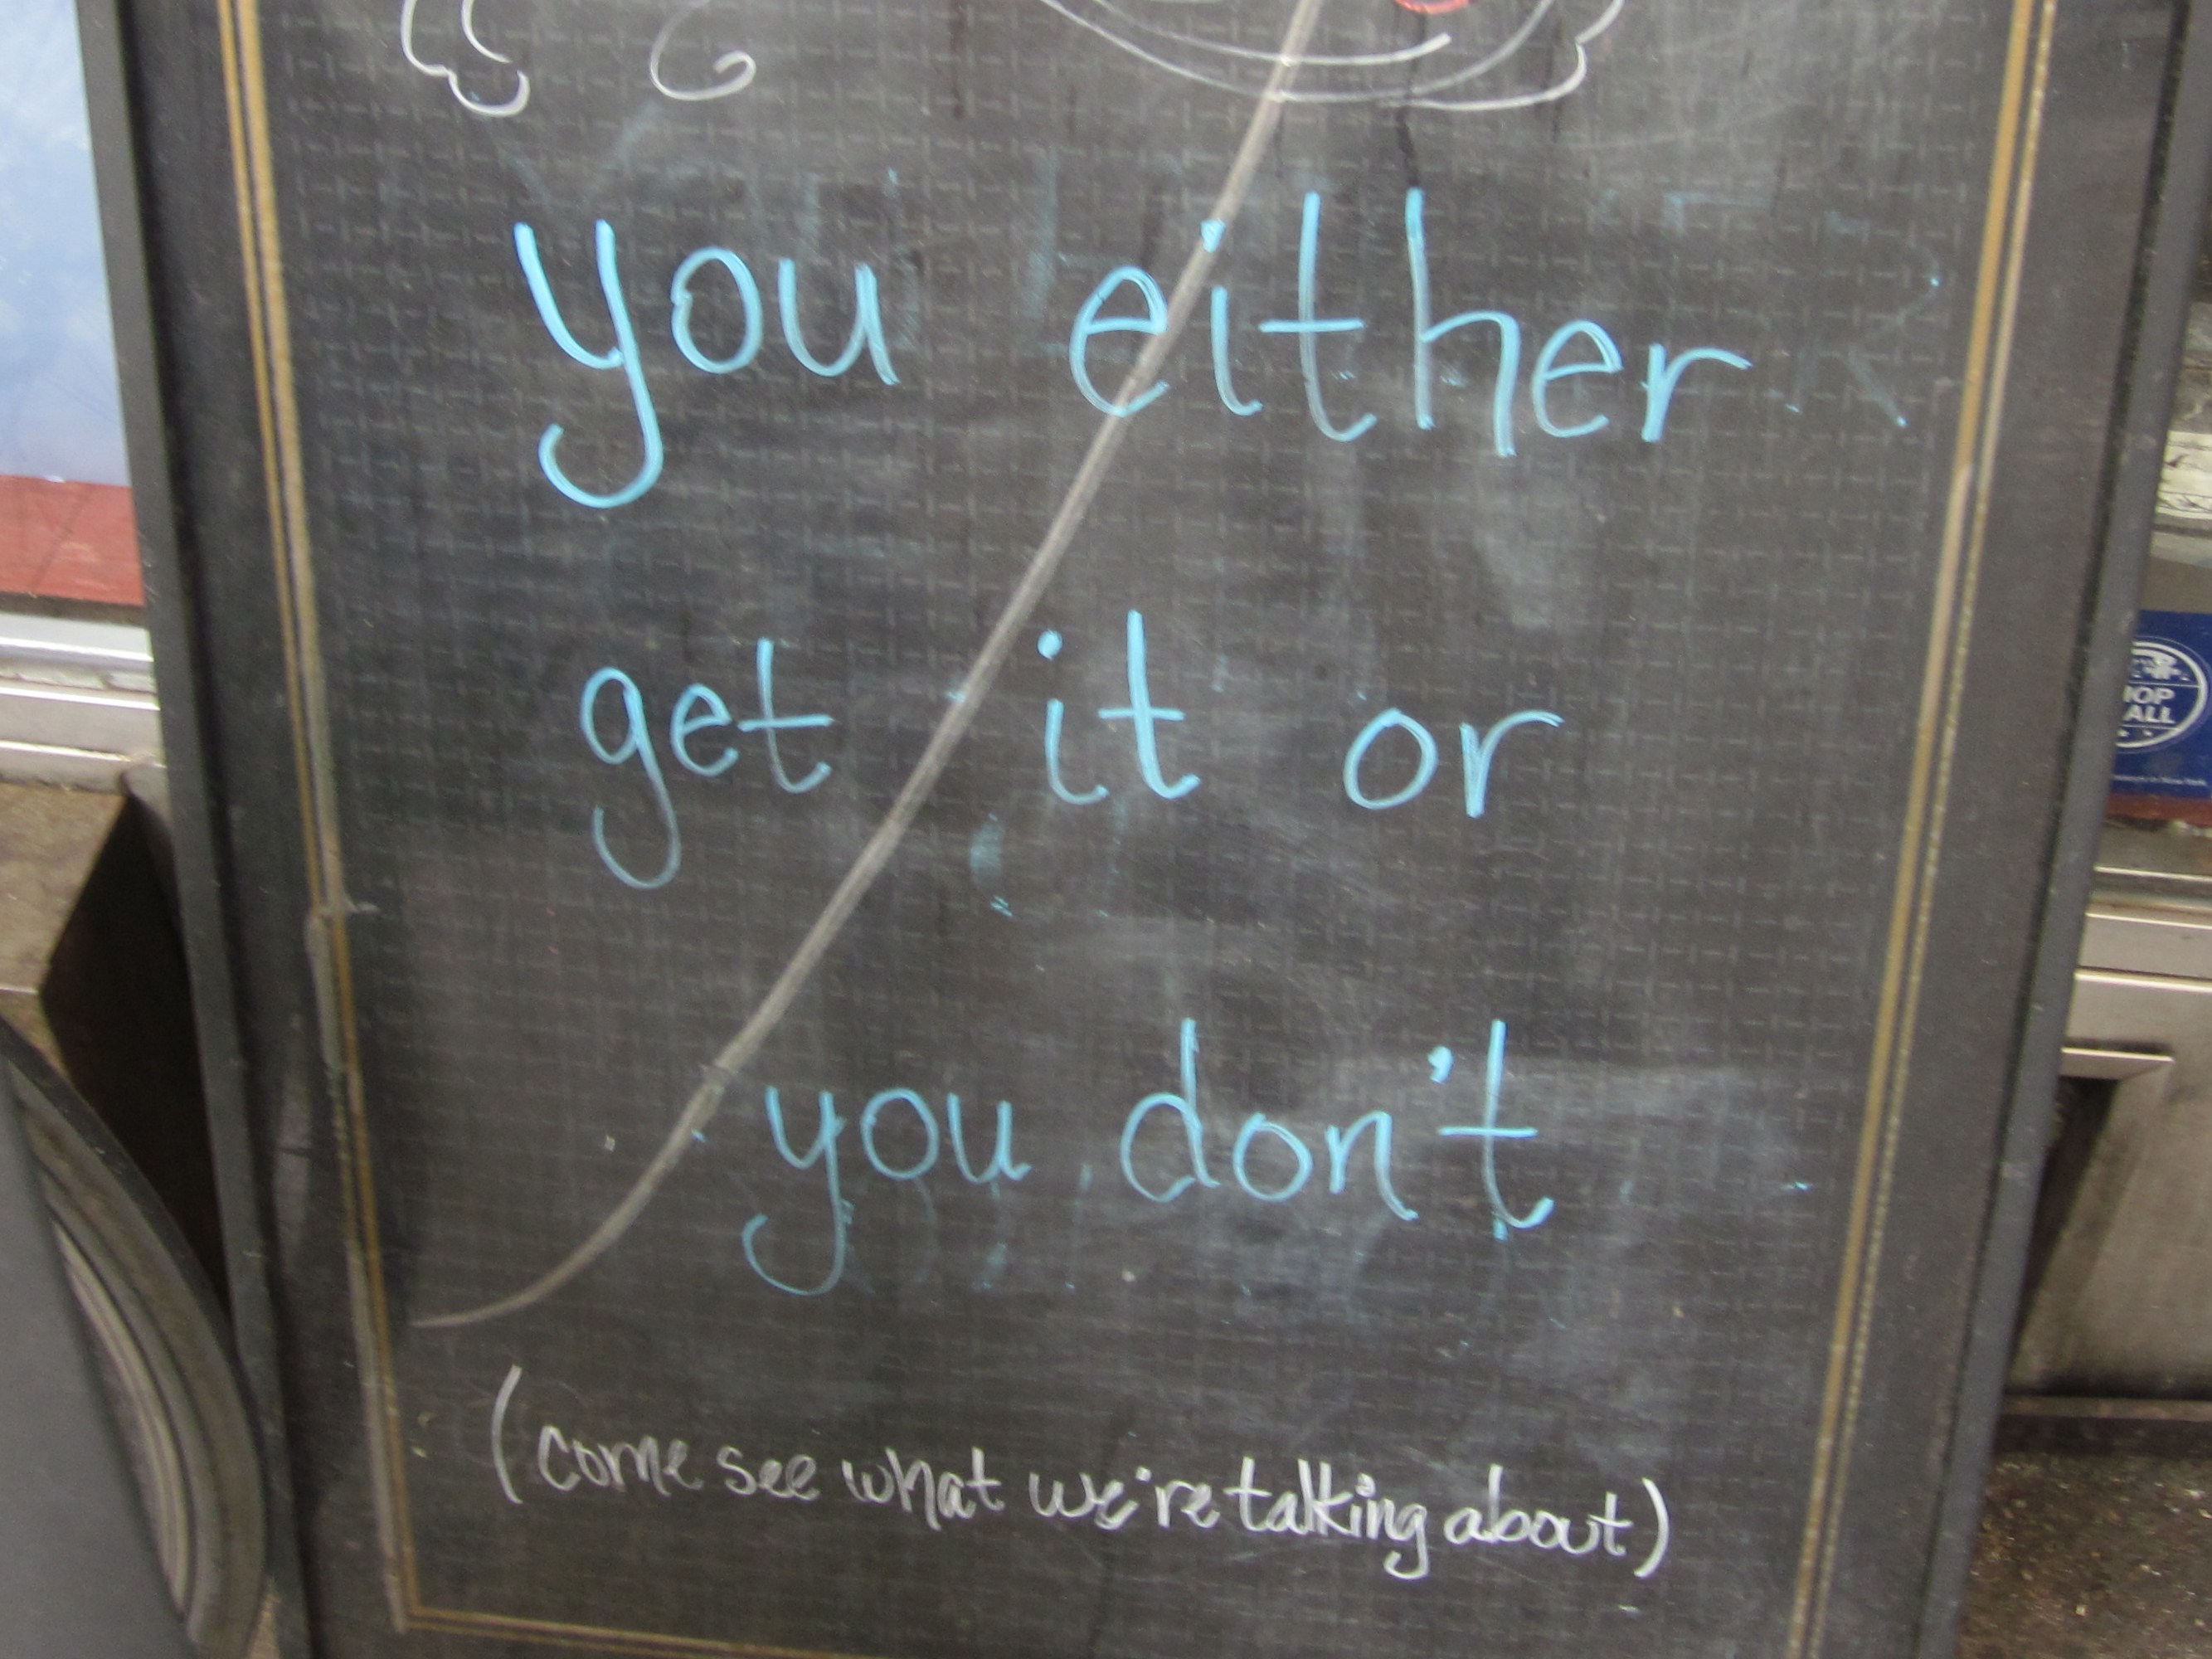 you either
get it or
you don't
(come see what we're talking about)
ALL